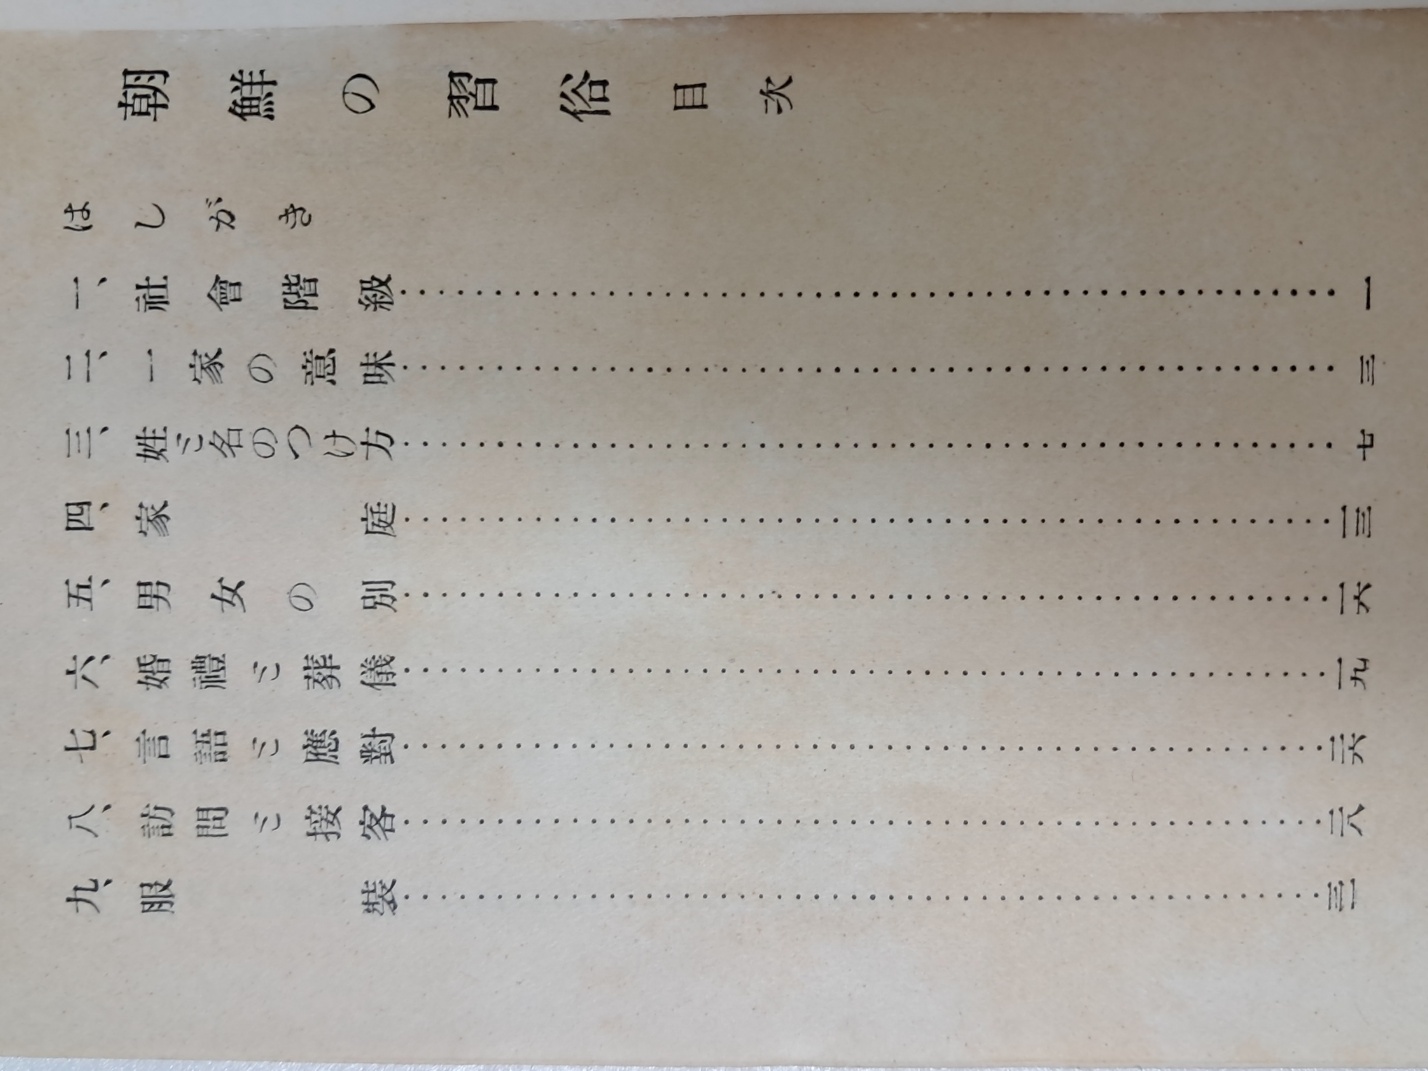 朝鮮の習俗目次
はしがき
一、社會階級……………一
二、一家の意味……………三
三、姓と名のつけ方……………七
四、家庭……………一三
五、男女の別……………一六
六、婚禮と葬儀……………一九
七、言語と應對……………二六
八、訪問と接客……………二八
九、服裝……………三一